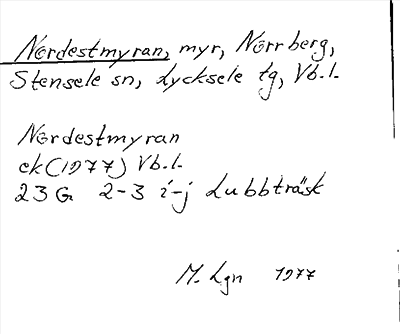 Nordestmyran, myr, Norrberg,
Stensele sn, Lycksele tg, Vb.l.
Nordestmyran
ek (1977) Vb.l.
23 G 2-3 i-j Lubbträsk
M. Lgn 1977